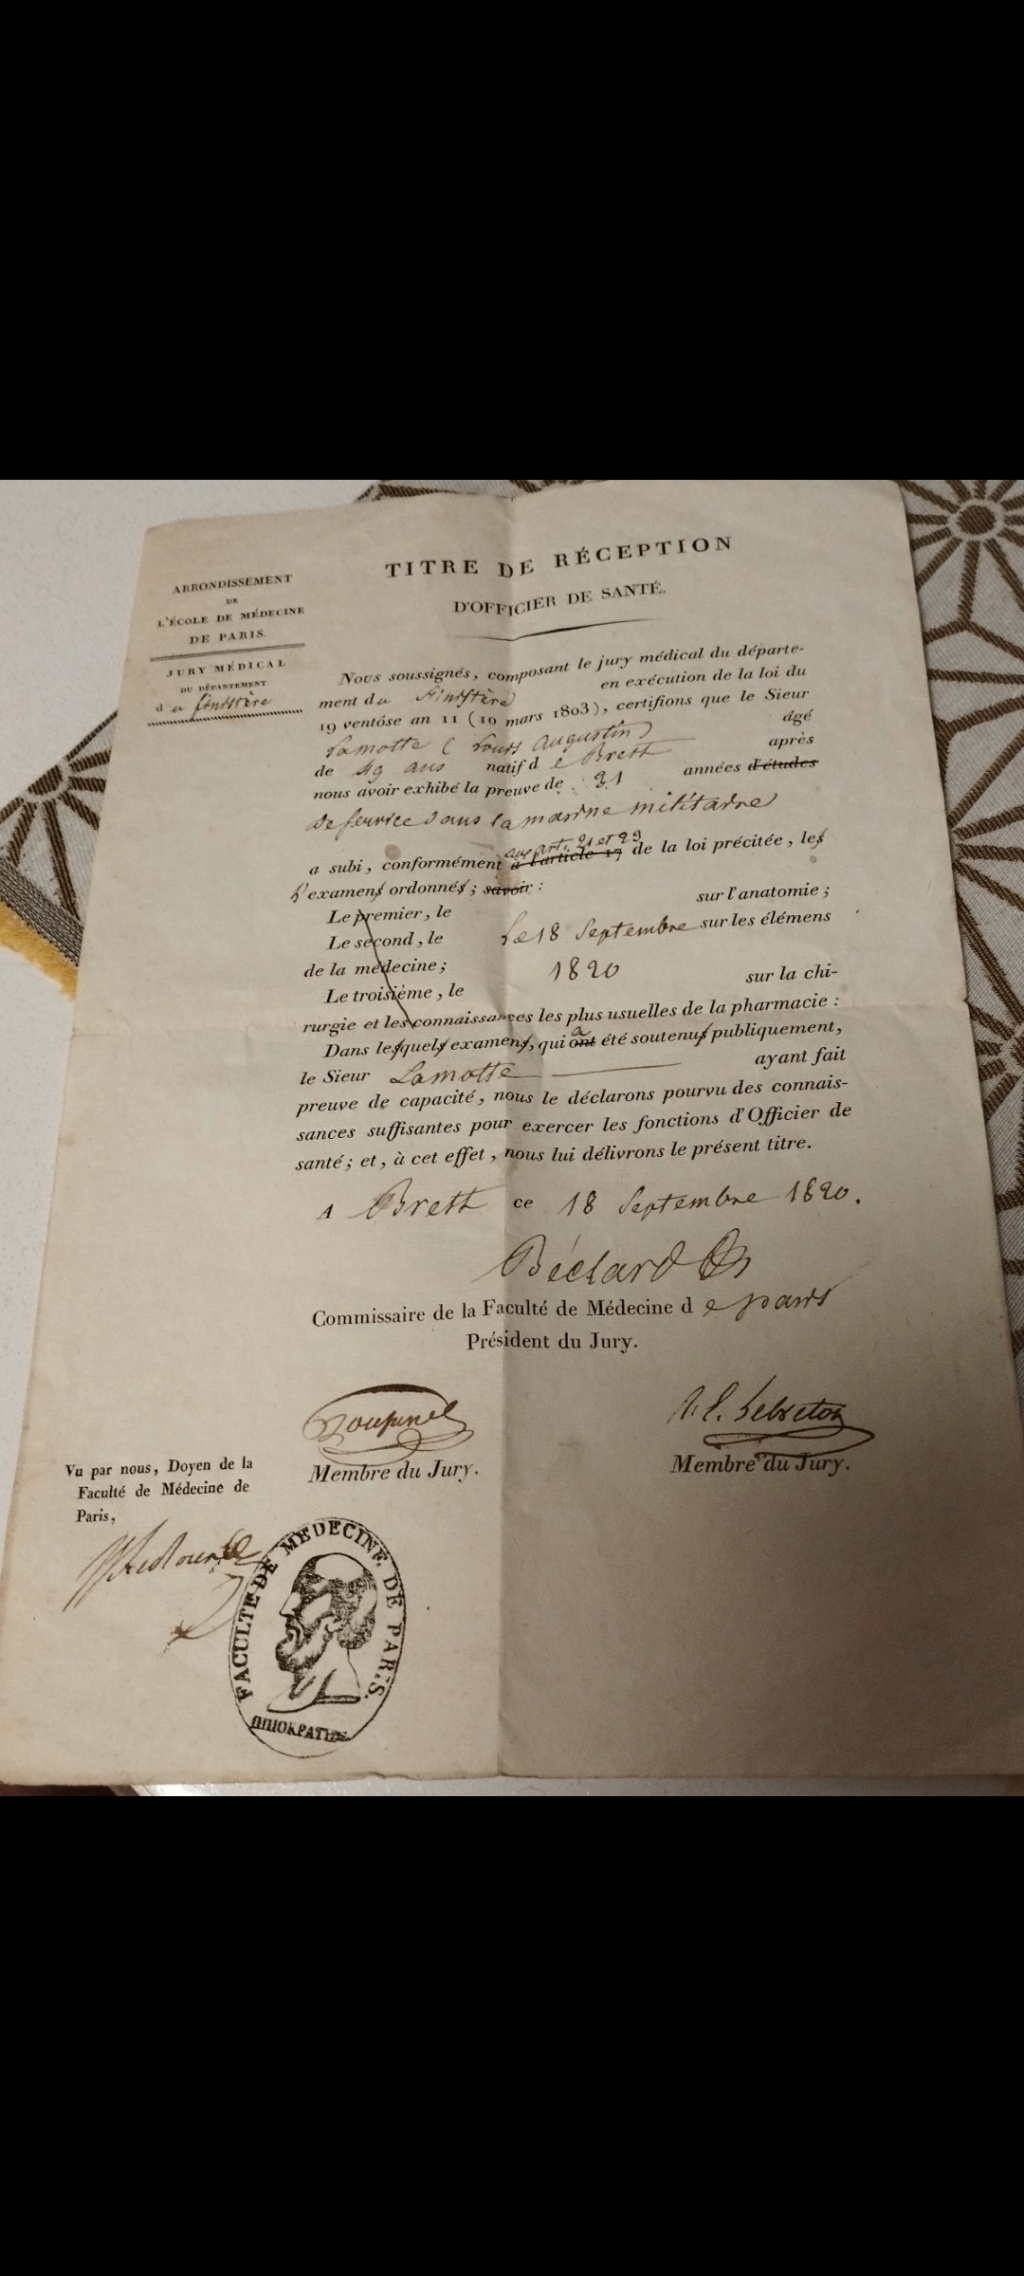 ARRONDISSEMENT
DE
L'ÉCOLE DE MÉDECINE
DE PARIS.
JURY MÉDICAL
DU DÉPARTEMENT
du finistère
TITRE DE RÉCEPTION
D'OFFICIER DE SANTÉ.
Nous soussignés, composant le jury médical du départe-
ment du Finistère en exécution de la loi du
19 ventôse an 11 (10 mars 1803), certifions que le Sieur
Lamotte (Louis Augustin) âgé
de 49 ans natif de Brest après
nous avoir exhibé la preuve de 31 années d'études
de service dans la marine militaire
aux art. 21 et 23
a subi, conformément à l'article 17 de la loi précitée, les
L'examens ordonnés; savoir :
Le premier, le sur l'anatomie;
Le second, le Le 18 Septembre sur les élémens
de la médecine; 1820
Le troisième, le sur la chi-
rurgie et les connaissances les plus usuelles de la pharmacie :
Dans lesquels examens, qui ont a été soutenus publiquement,
le Sieur Lamotte ayant fait
preuve de capacité, nous le déclarons pourvu des connais-
sances suffisantes pour exercer les fonctions d'Officier de
santé; et, à cet effet, nous lui délivrons le présent titre.
A Brest ce 18 Septembre 1820.
Béclard
Commissaire de la Faculté de Médecine de paris
Président du Jury.
Membre du Jury.
Membre du Jury.
Vu par nous, Doyen de la
Faculté de Médecine de
Paris,
FACULTE DE MEDECINE DE PARIS.